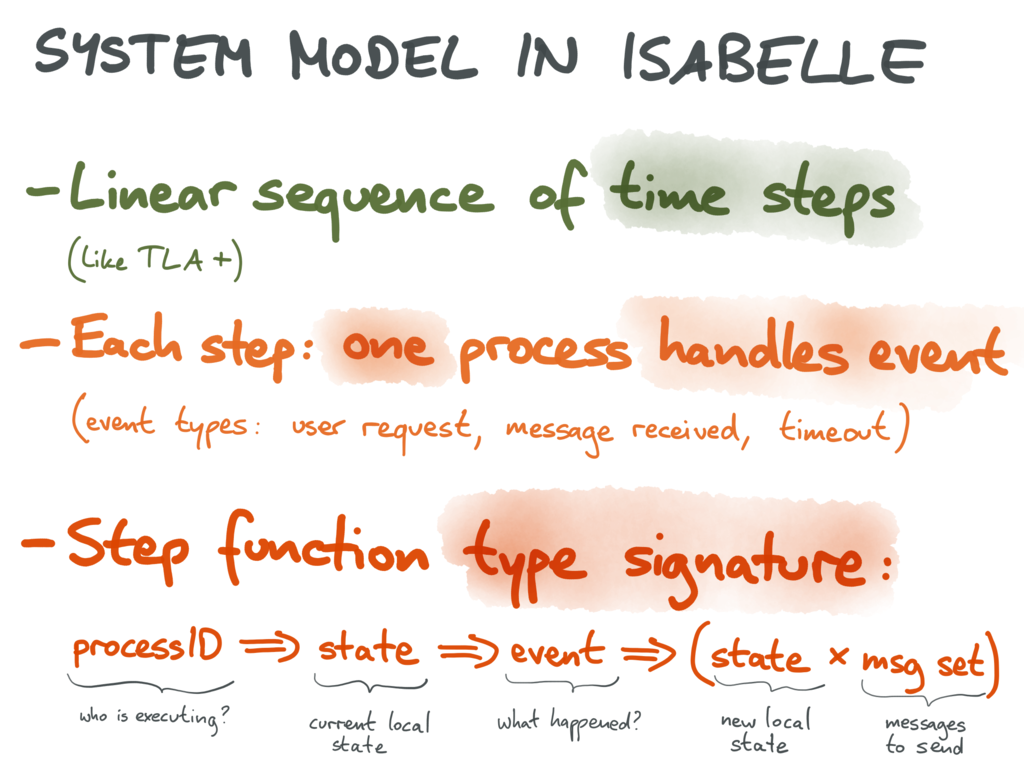 SYSTEM MODEL IN ISABELLE
- Linear sequence of time steps
(like TLA+)
- Each step: one process handles event
(event types: user request, message received, timeout)
- Step function type signature:
processID ⇒ state ⇒ event ⇒ (state × msg set)
who is executing? current local state what happened? new local state messages to send